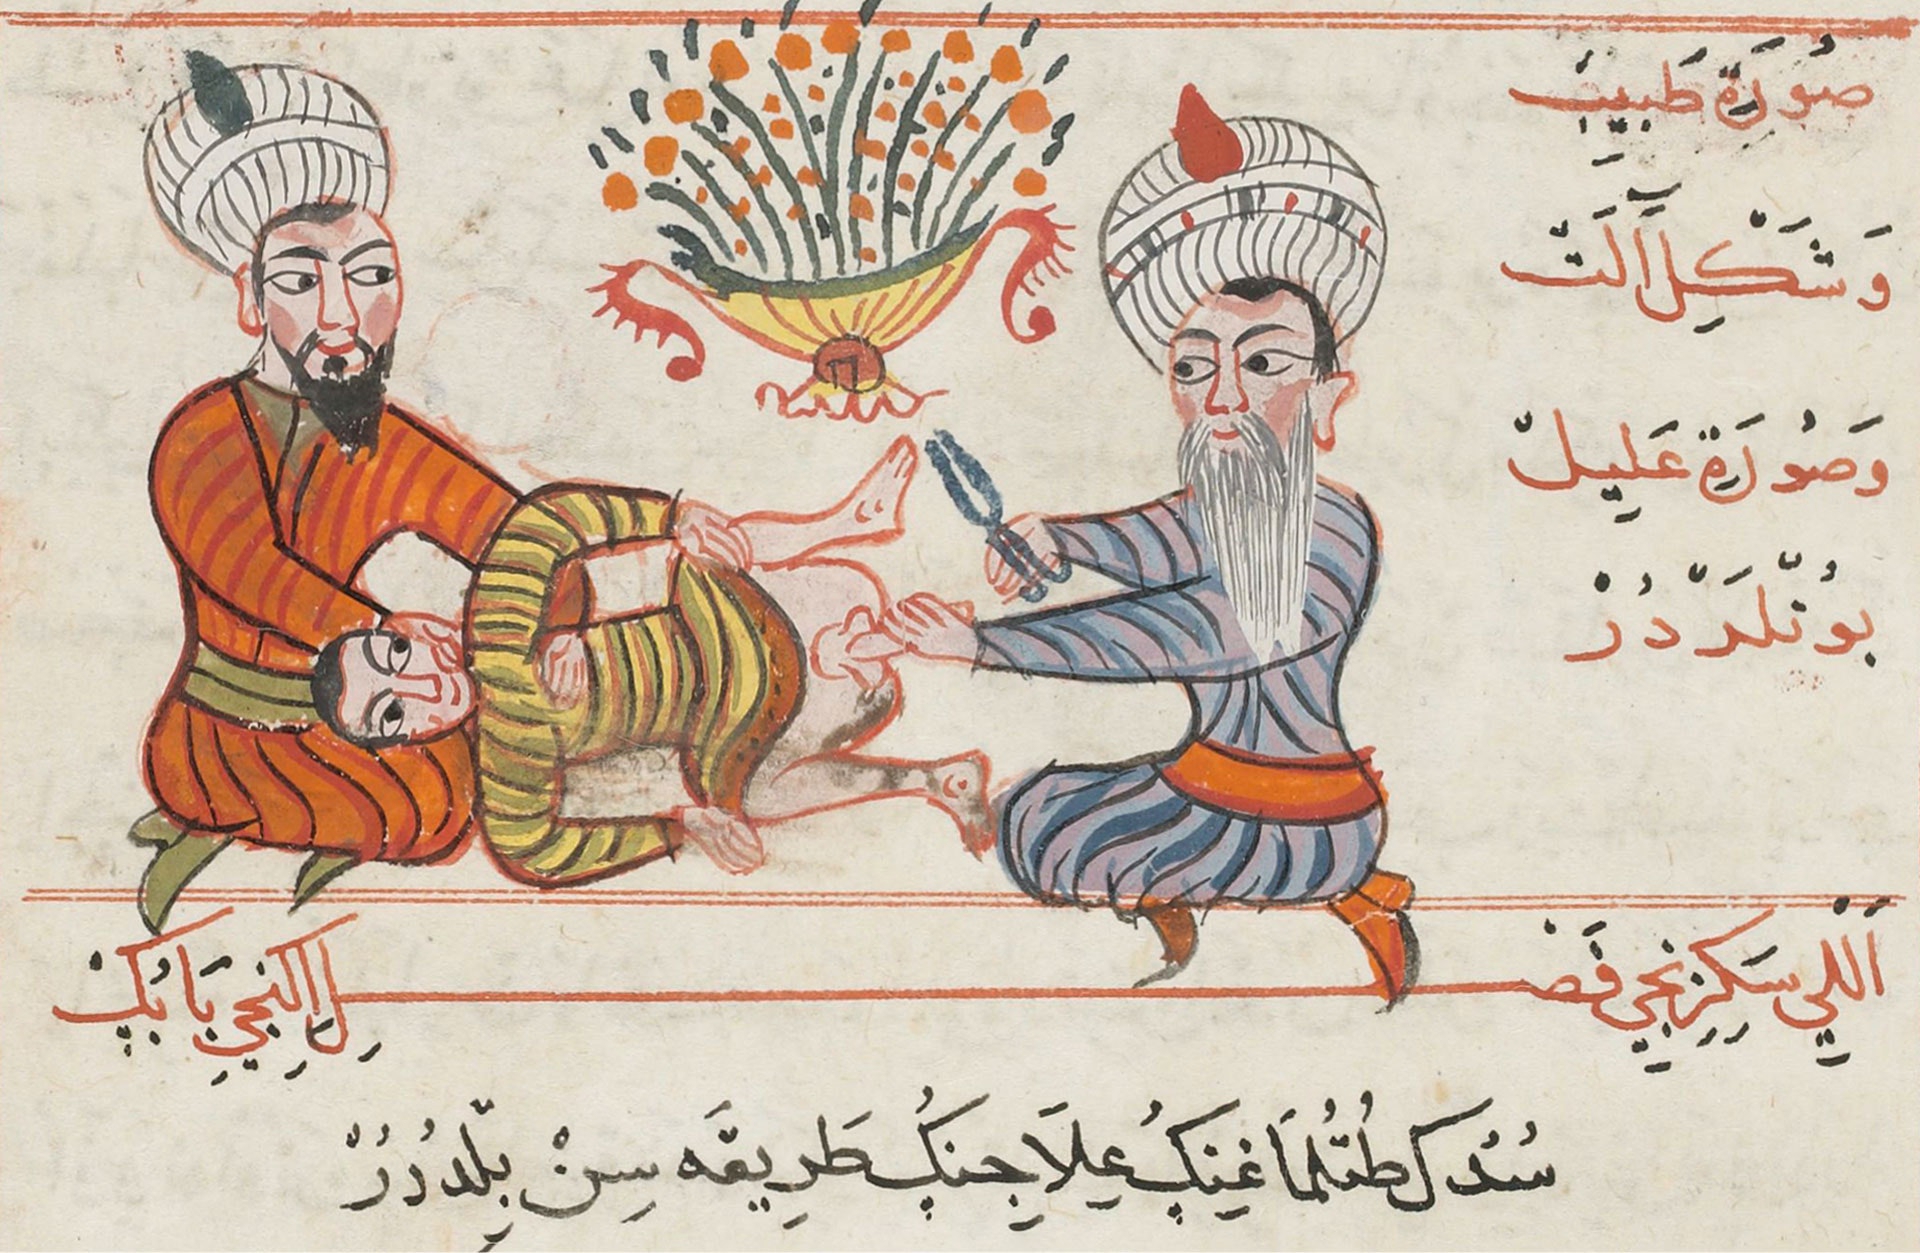 صُورَة طَبيبْ
وَشَكْلِ آلَتْ
وَصُورَة عَليلْ
بُونْلَرْدُرْ
اَللِي سَكِزِنْجِي فَصْلِ اِكِنْجِي بَابُكْ
سُدُكْ طُتُلْمَاغِنِكْ عِلَاجِنِكْ طَرِيقَه سِنْ بِلْدُرُرْ